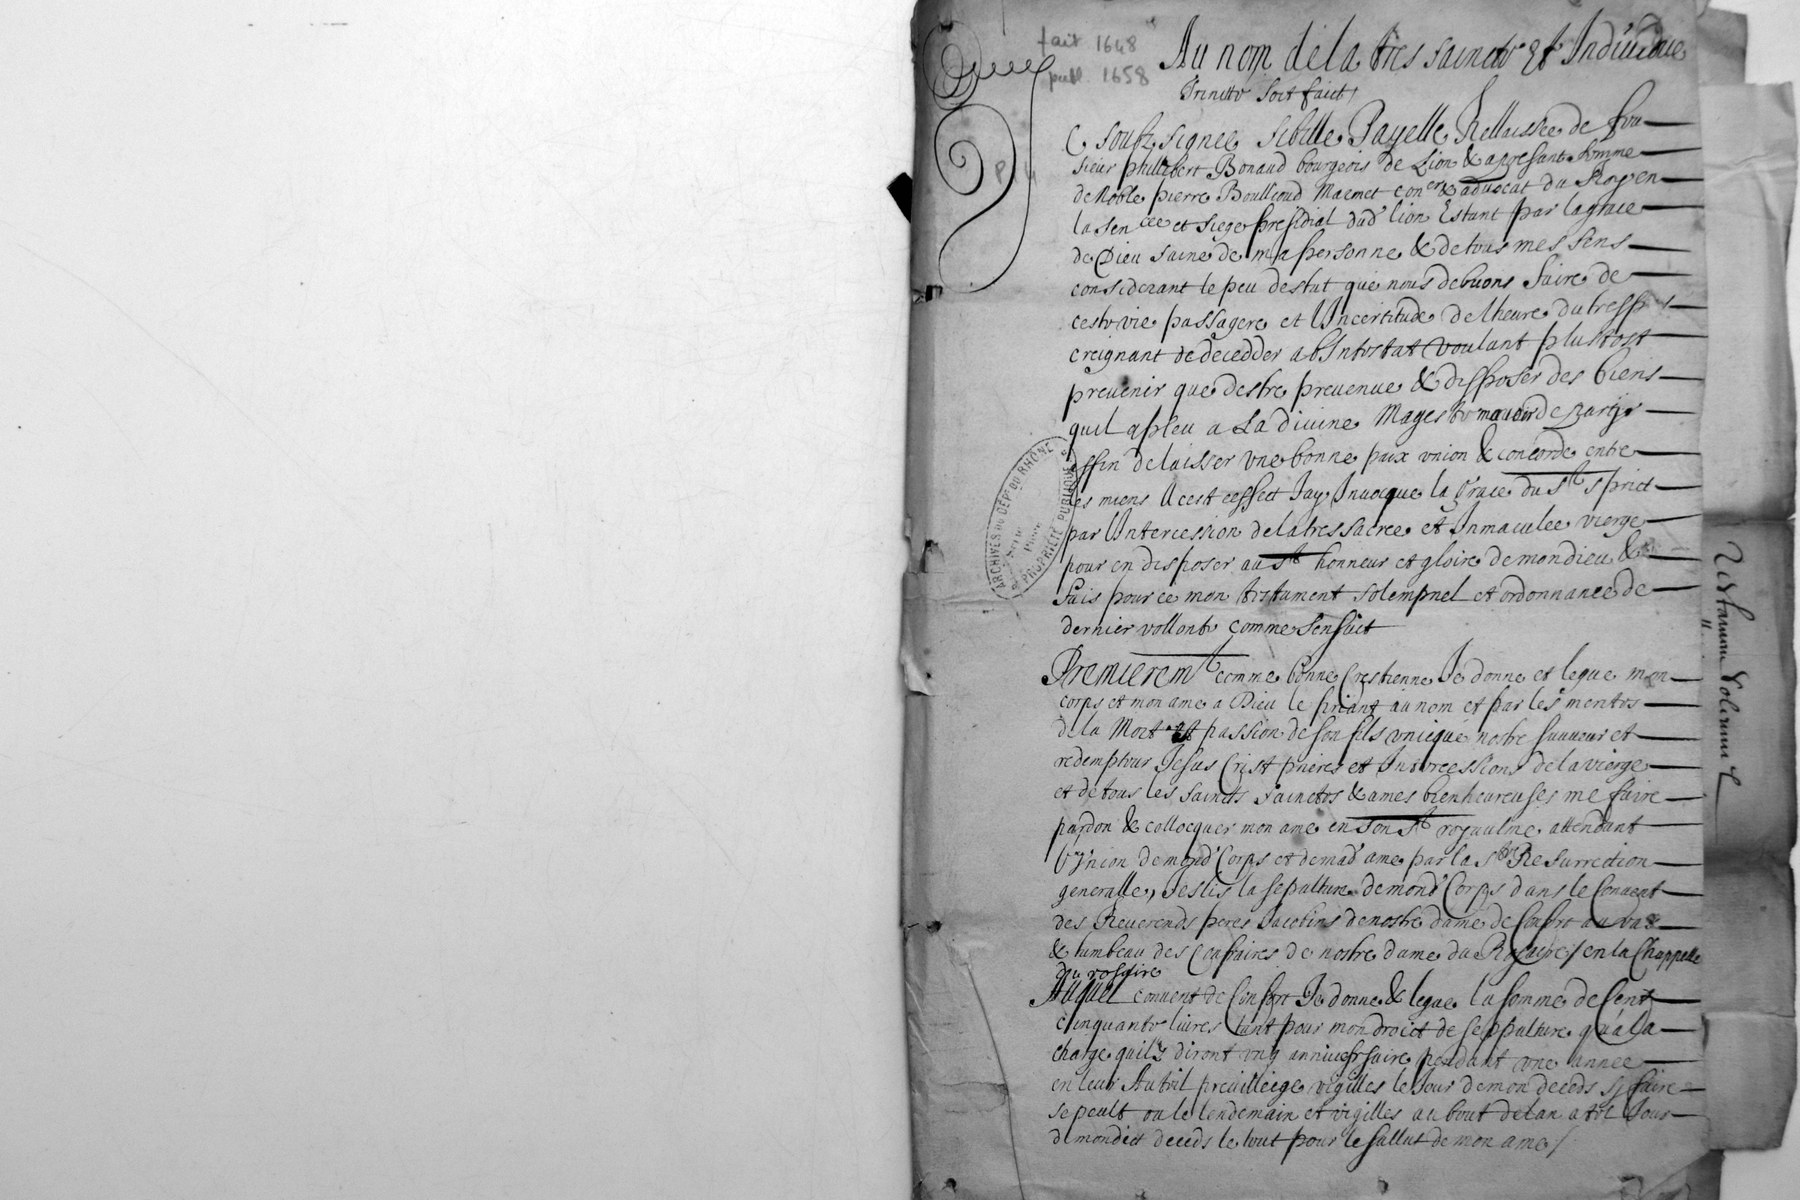 fait 1648
publ. 1658
Au nom de la tres saincte Et Individue
Trinitté soit faict /
soubz signee sibille Payelle Rellaissee de feu
sieur phillibert Bonaud bourgeois de Lion & apresant femme
de Noble pierre Boullioud Mermet con.er & advocat du Roy en
la sen.cée et siege presidial dud' lion Estant par la grace
de Dieu saine de ma personne & de tous mes sens
considerant le peu destat que nous debvons faire de
ceste vie passagere et Lincertitude de lheure du tresspas
creignant de decedder abIntestat voulant plustost
prevenir que destre prevenue & disposer des biens
quil a pleu a La divine Mageste mavoir de partjr
affin de laisser vne bonne paix vnion & concorde entre
les miens A cest eeffect Jay Jnvocque la Grace du St sprict
par Lintercession de la tressacree et Inmaculee vierge
pour en disposer au St honneur et gloire de mon dieu &
fais pour ce mon testament solempnel et ordonnance de
dernier vollonte comme sensuit
Premierem.t comme bonne Crestienne Je donne et legue mon
corps et mon ame a Dieu le priant au nom et par les merites
de la Mort et passion de son fils vnicque nostre sauveur et
redempteur Jesus Crist prieres et Intercessions de la vierge
et de tous les saincts sainctes & ames bienheureuses me faire
pardon & collocquer mon ame en son St royaulme attendant
LVnion de mond' Corps et de mad' ame par la ste Resurrection
generalle, Jeslis la sepulture de mond' Corps dans le Convent
des Reverends peres Jacobins de nostre dame de Confort au vas
& tumbeau des Confraires de nostre dame du Rosaire / en la Chappelle
du rosaire
Auquel convent de Confort Je donne & legue la somme de Cent
cinquante livres tant pour mon droict de seppulture qu'a La
charge quilz diront vng anniversaire pendant vne annee
en leur Autel previlleige vigilles le Jour de mon deceds sy faire
se peult ou le lendemain et vigilles au bout de lan a tel Jour
de mondict deceds le tout pour le sallut de mon ame /
ARCHIVES DU DÉPT DU RHÔNE
Série
Pièce
PROPRIÉTÉ PUBLIQUE
Testament Solennel